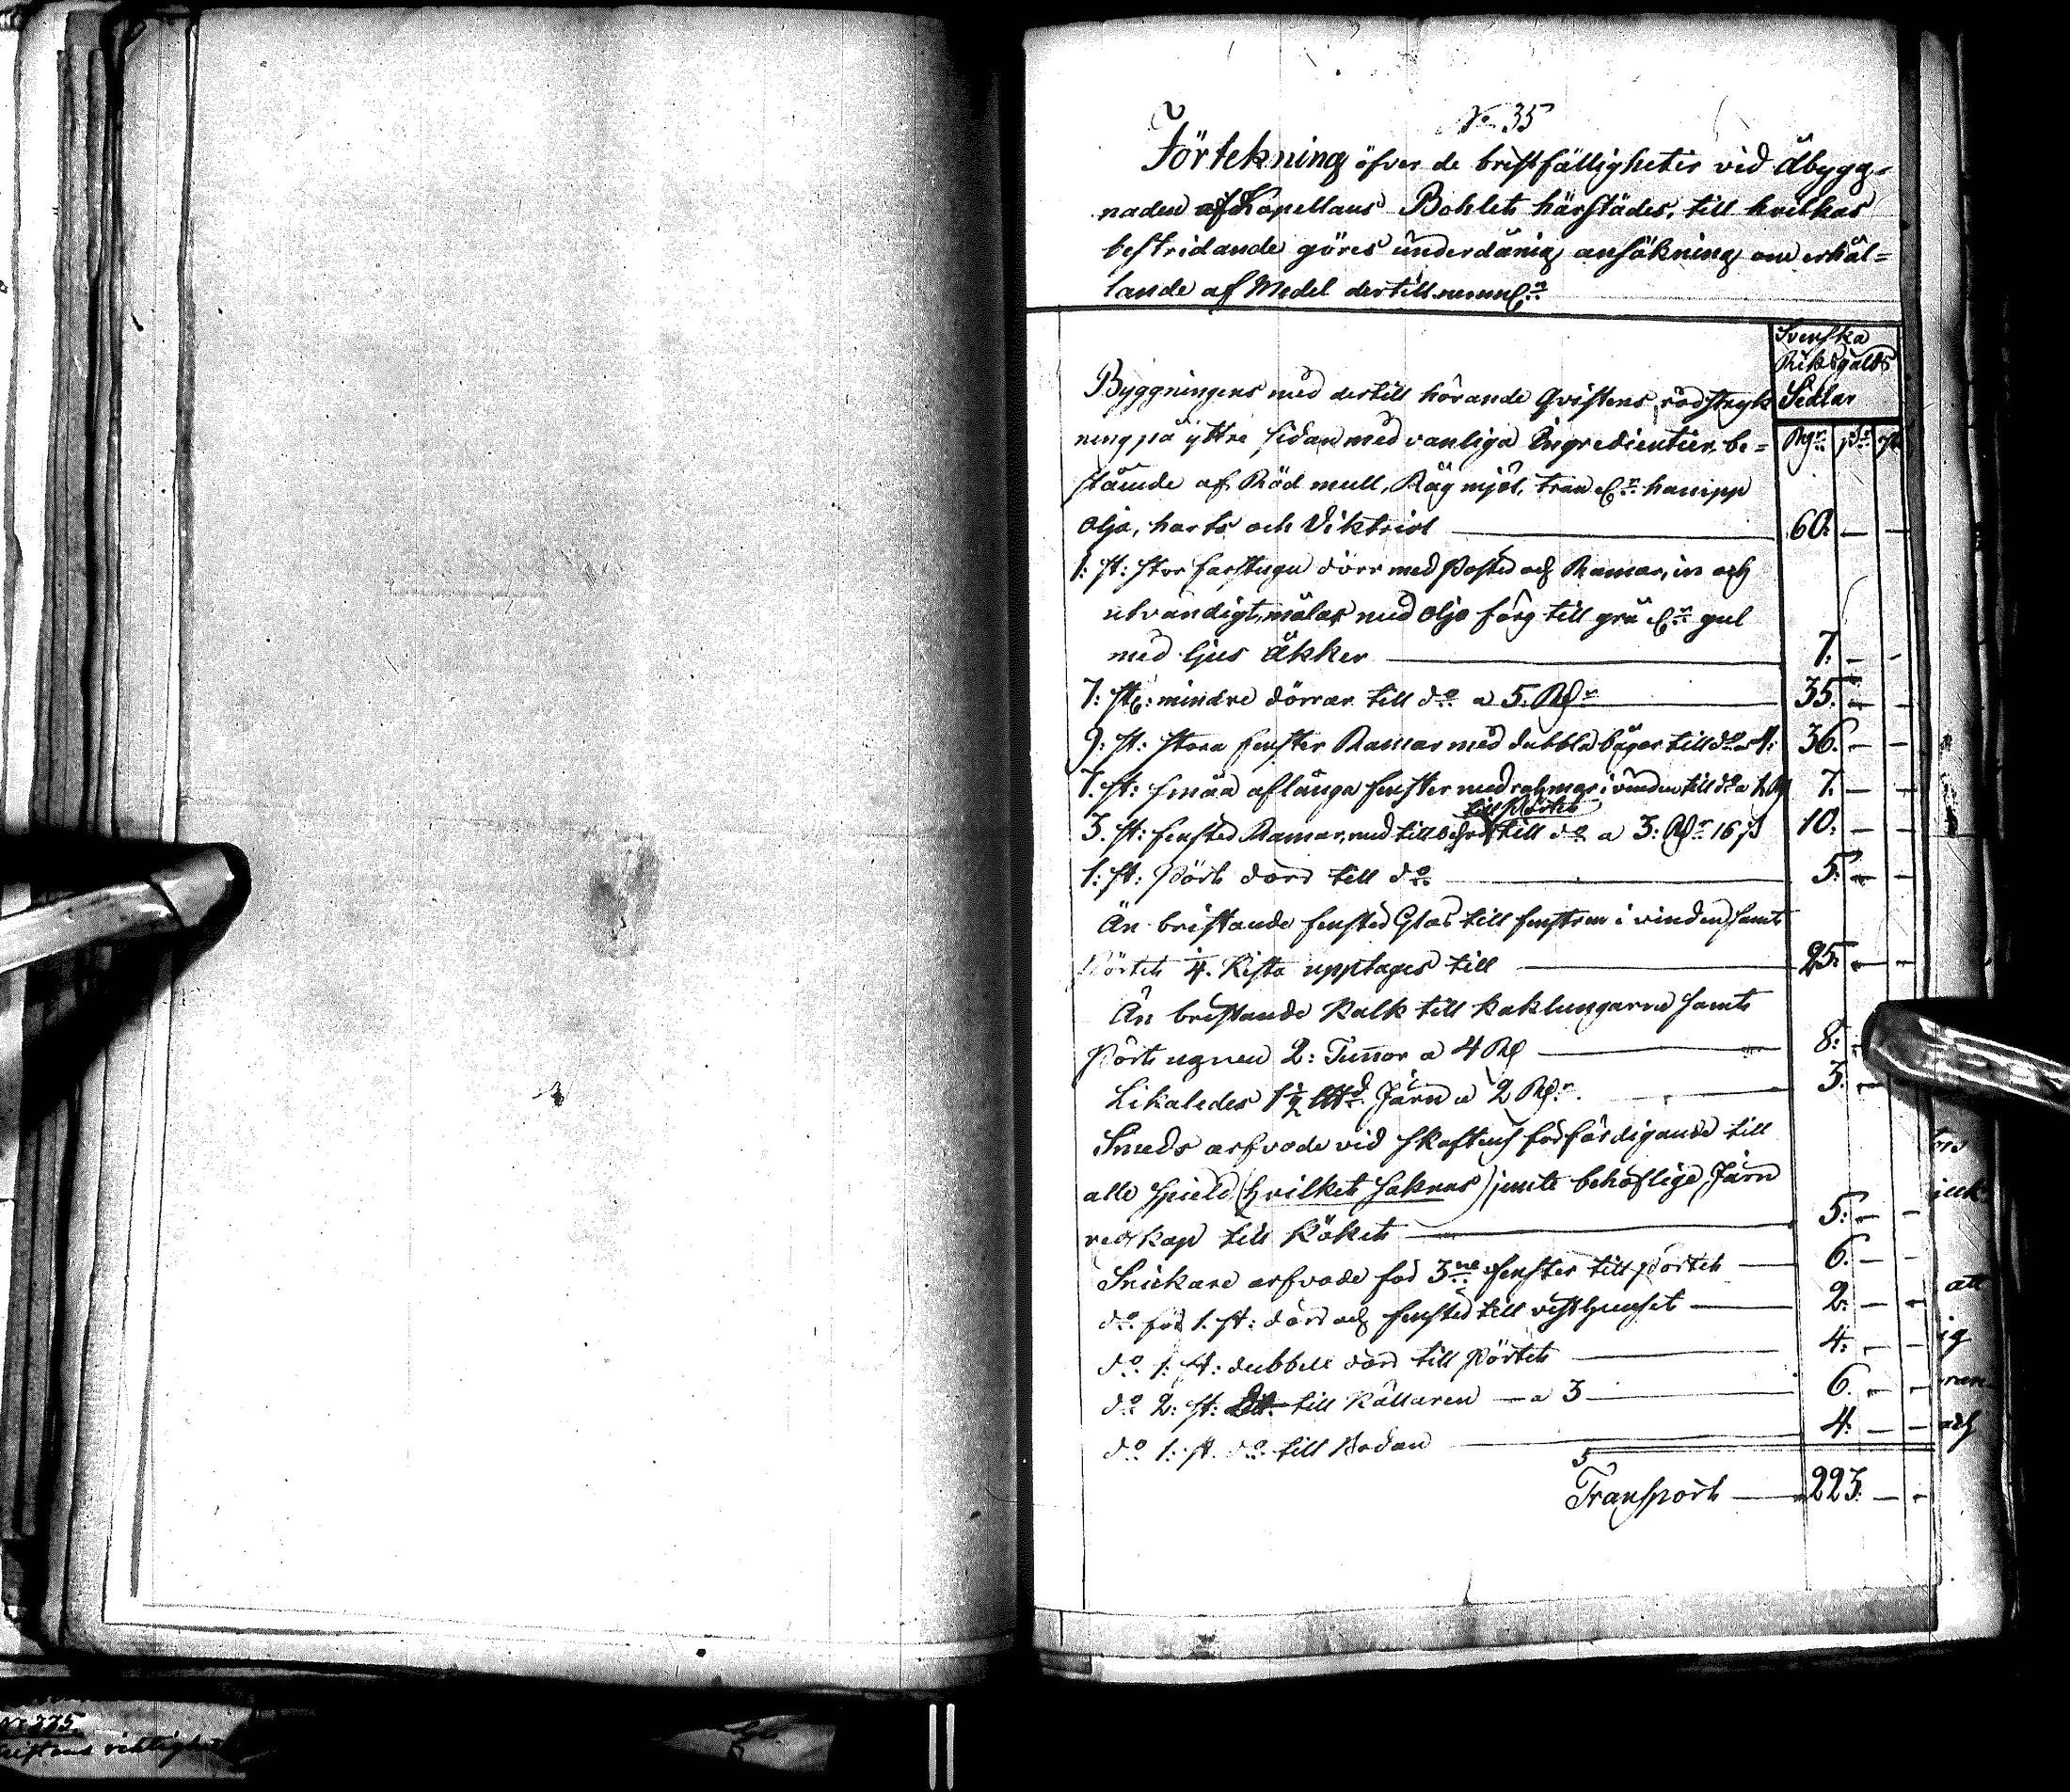 No 35
Förtekning öfver de bristfälligheter vid åbygg-
naden af Kapellans Bohlet härstädes, till hvilkas
bestridande göres underdånig ansökning om erhål-
lande af Medel dertill
Svenska
Riksgälds
Sedlar
Byggningens med dertill hörande Qvistens rödstryk
ning på yttre sidan med vanliga Ingredientier, be-
stående af Röd mull, Råg mjöl, tran hampp
olja, harts och Viktriol 60. — —
1: st: stor farstugu dörr med Poster och Ramar, in och
utvändigt, målas med olje färg till grå gul
med ljus åkker 7. — —
7: st: mindre dörrar till do a 5. Rdr 35. — —
9: st: stora fenster Ramar med dubbla bågar till do a 4: 36. — —
7. st: små aflånga fenster med rahmar i vinden till do a 7. — —
till Pörtet
3. st: fenster Ramar, med till do a 3: Rdr 16 10. — —
1: st: Pört dörr till do 5. — —
Än bristande fenster Glas till fenstren i vinden samt
Pörtet 1/4. Kista upptages till 25. — —
Än bristande Kalk till kaklungarne samt
Pörtugnen 2: Tunnor a 4 Rd 8:
Likaledes 1 1/2 Järn a 2 Rdr. 3. —
Smeds arfvode vid skaftens förfärdigande till
alle spield (hvilket saknas) jemte behöflige Järn
redskap till Köket 5: — —
Snickare arfvode för 3ne fenster till pörtet 6. — —
do för 1. st: dörr och fenster till visthuuset 2. — —
do 1: st: dubbell dörr till Pörtet 4. — —
do 2: st: till Källaren — a 3 6. — —
do 1: st. do till Bodan 4. — —
Transport 223. — —
att
ig
och
No 225.